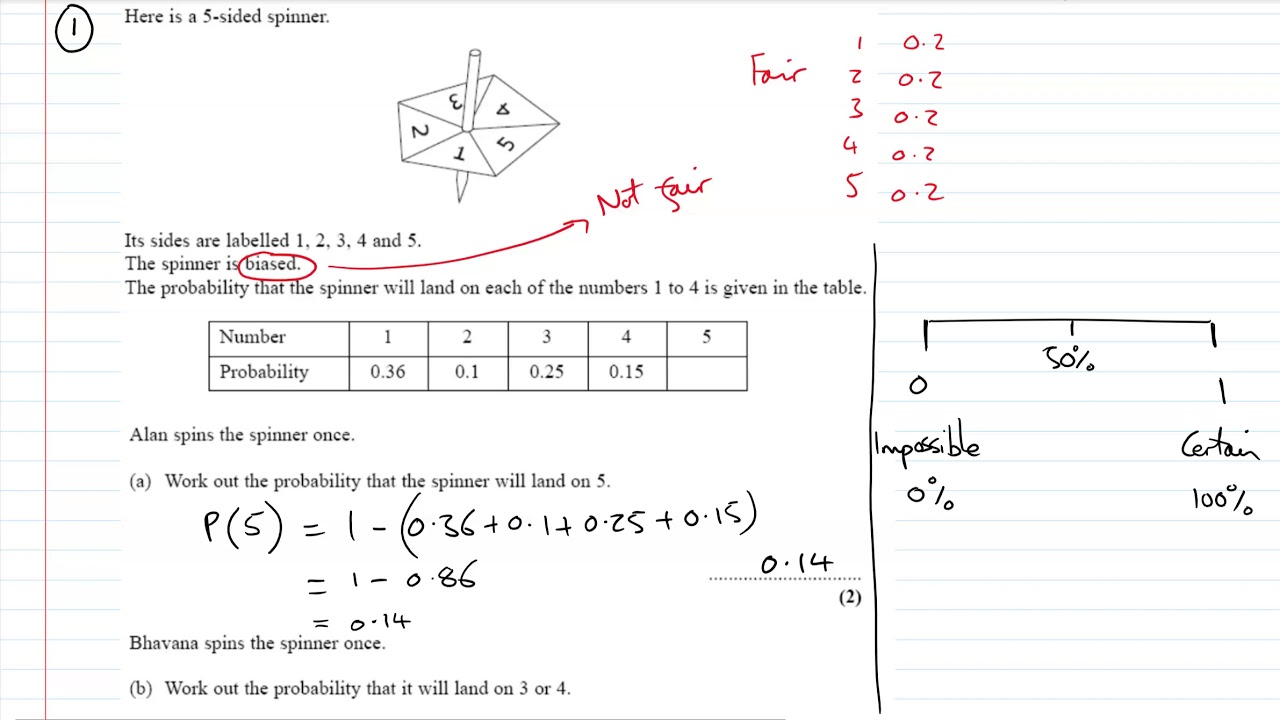 1
Here is a 5-sided spinner.
3
4
2
5
1
Fair
1 0.2
2 0.2
3 0.2
4 0.2
5 0.2
Not fair
Its sides are labelled 1, 2, 3, 4 and 5.
The spinner is biased.
The probability that the spinner will land on each of the numbers 1 to 4 is given in the table.
Number 1 2 3 4 5
Probability 0.36 0.1 0.25 0.15
Alan spins the spinner once.
(a) Work out the probability that the spinner will land on 5.
P(5) = 1 - (0.36 + 0.1 + 0.25 + 0.15)
= 1 - 0.86
= 0.14
0.14
(2)
Bhavana spins the spinner once.
(b) Work out the probability that it will land on 3 or 4.
50%
0 1
Impossible Certain
0% 100%